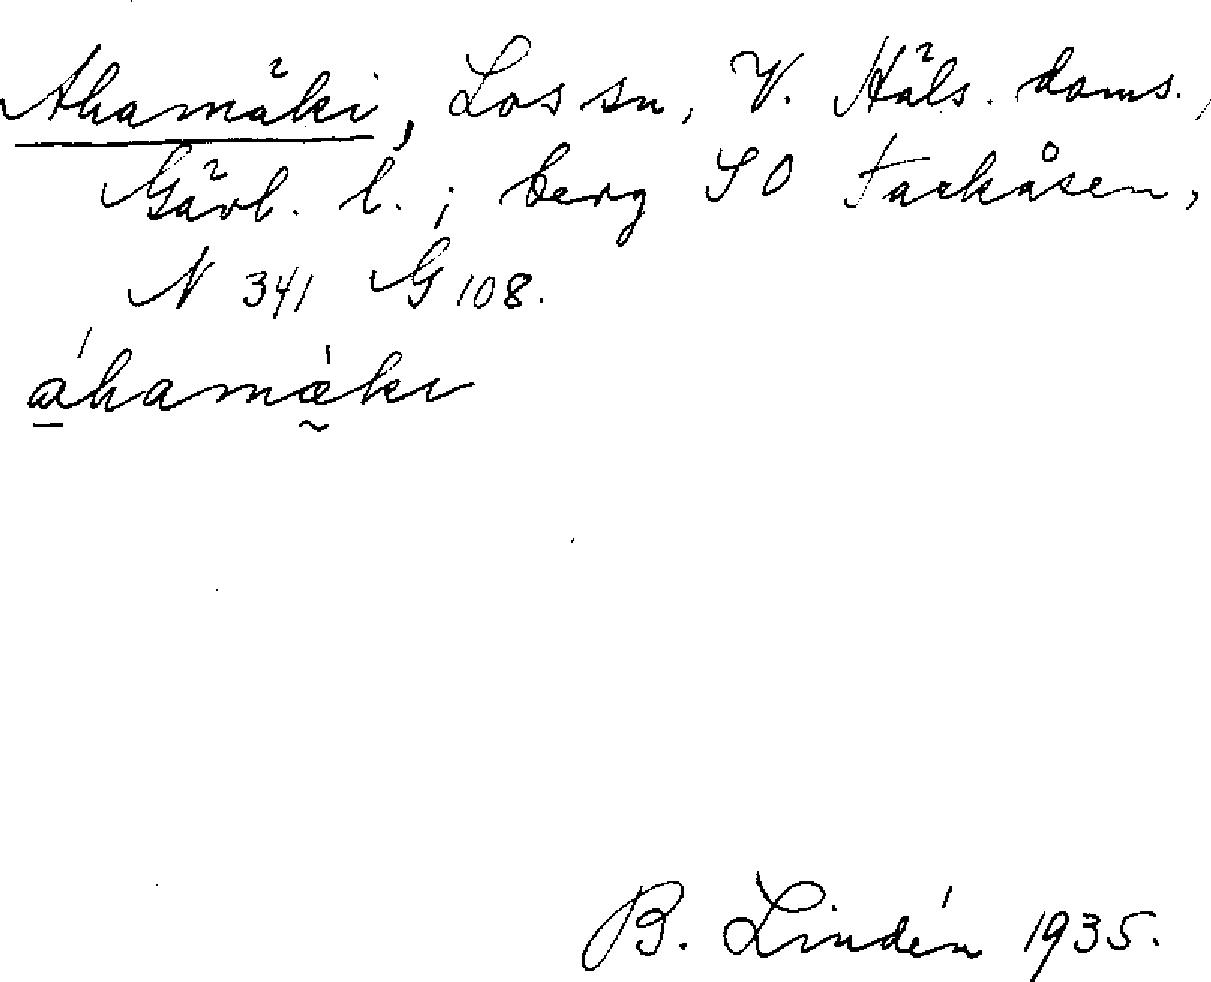 Ahamäki, Los sn, V. Häls. doms.,
Gävl. l.; berg SO Tackåsen,
N 341 G 108.
áhamæ̀ki
B. Lindén 1935.